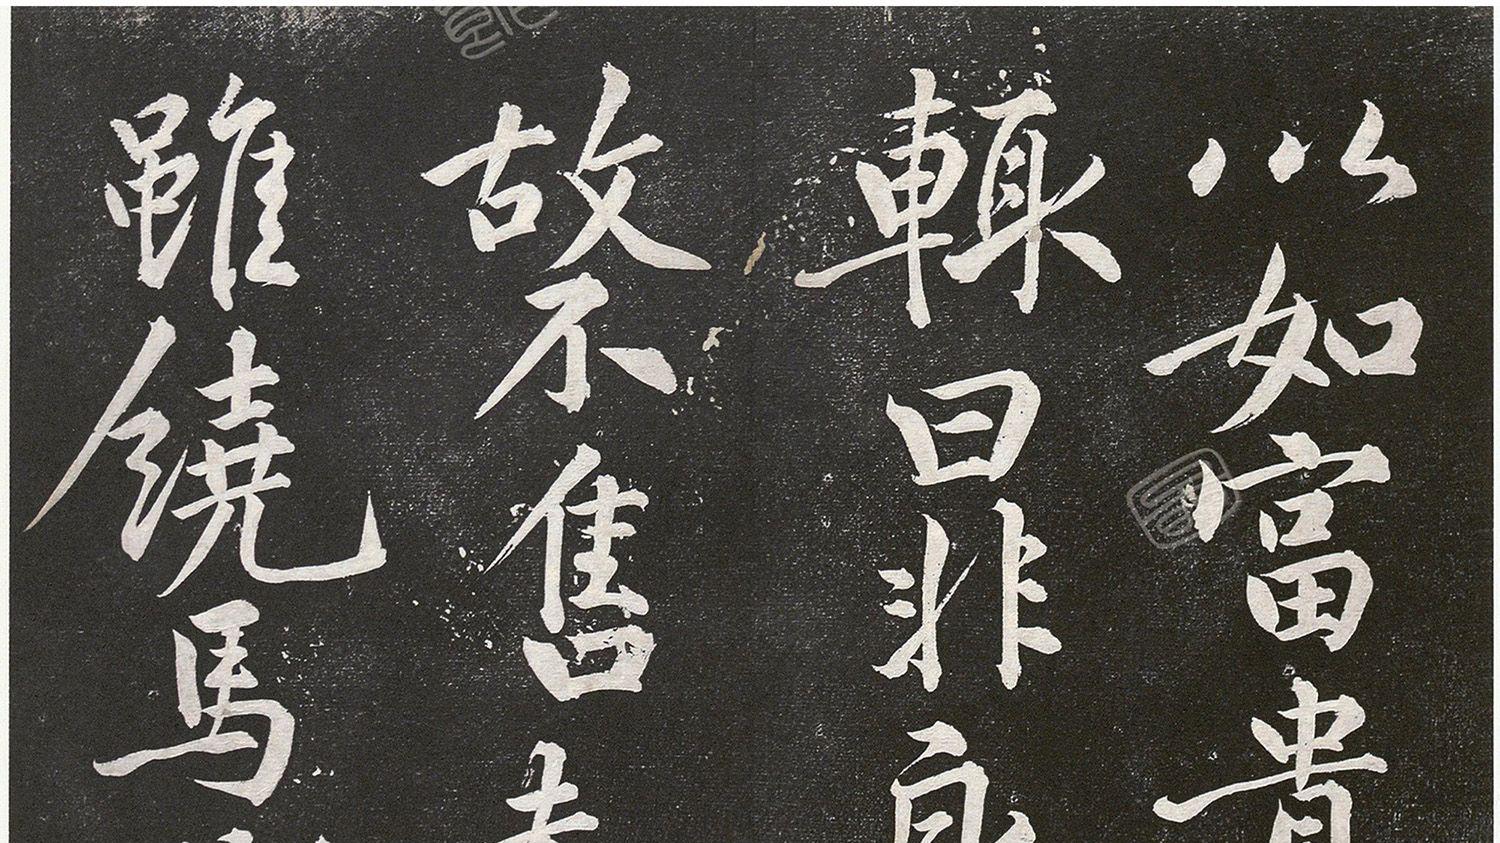 以如富貴
輙曰非良
故不售
雖饒馬